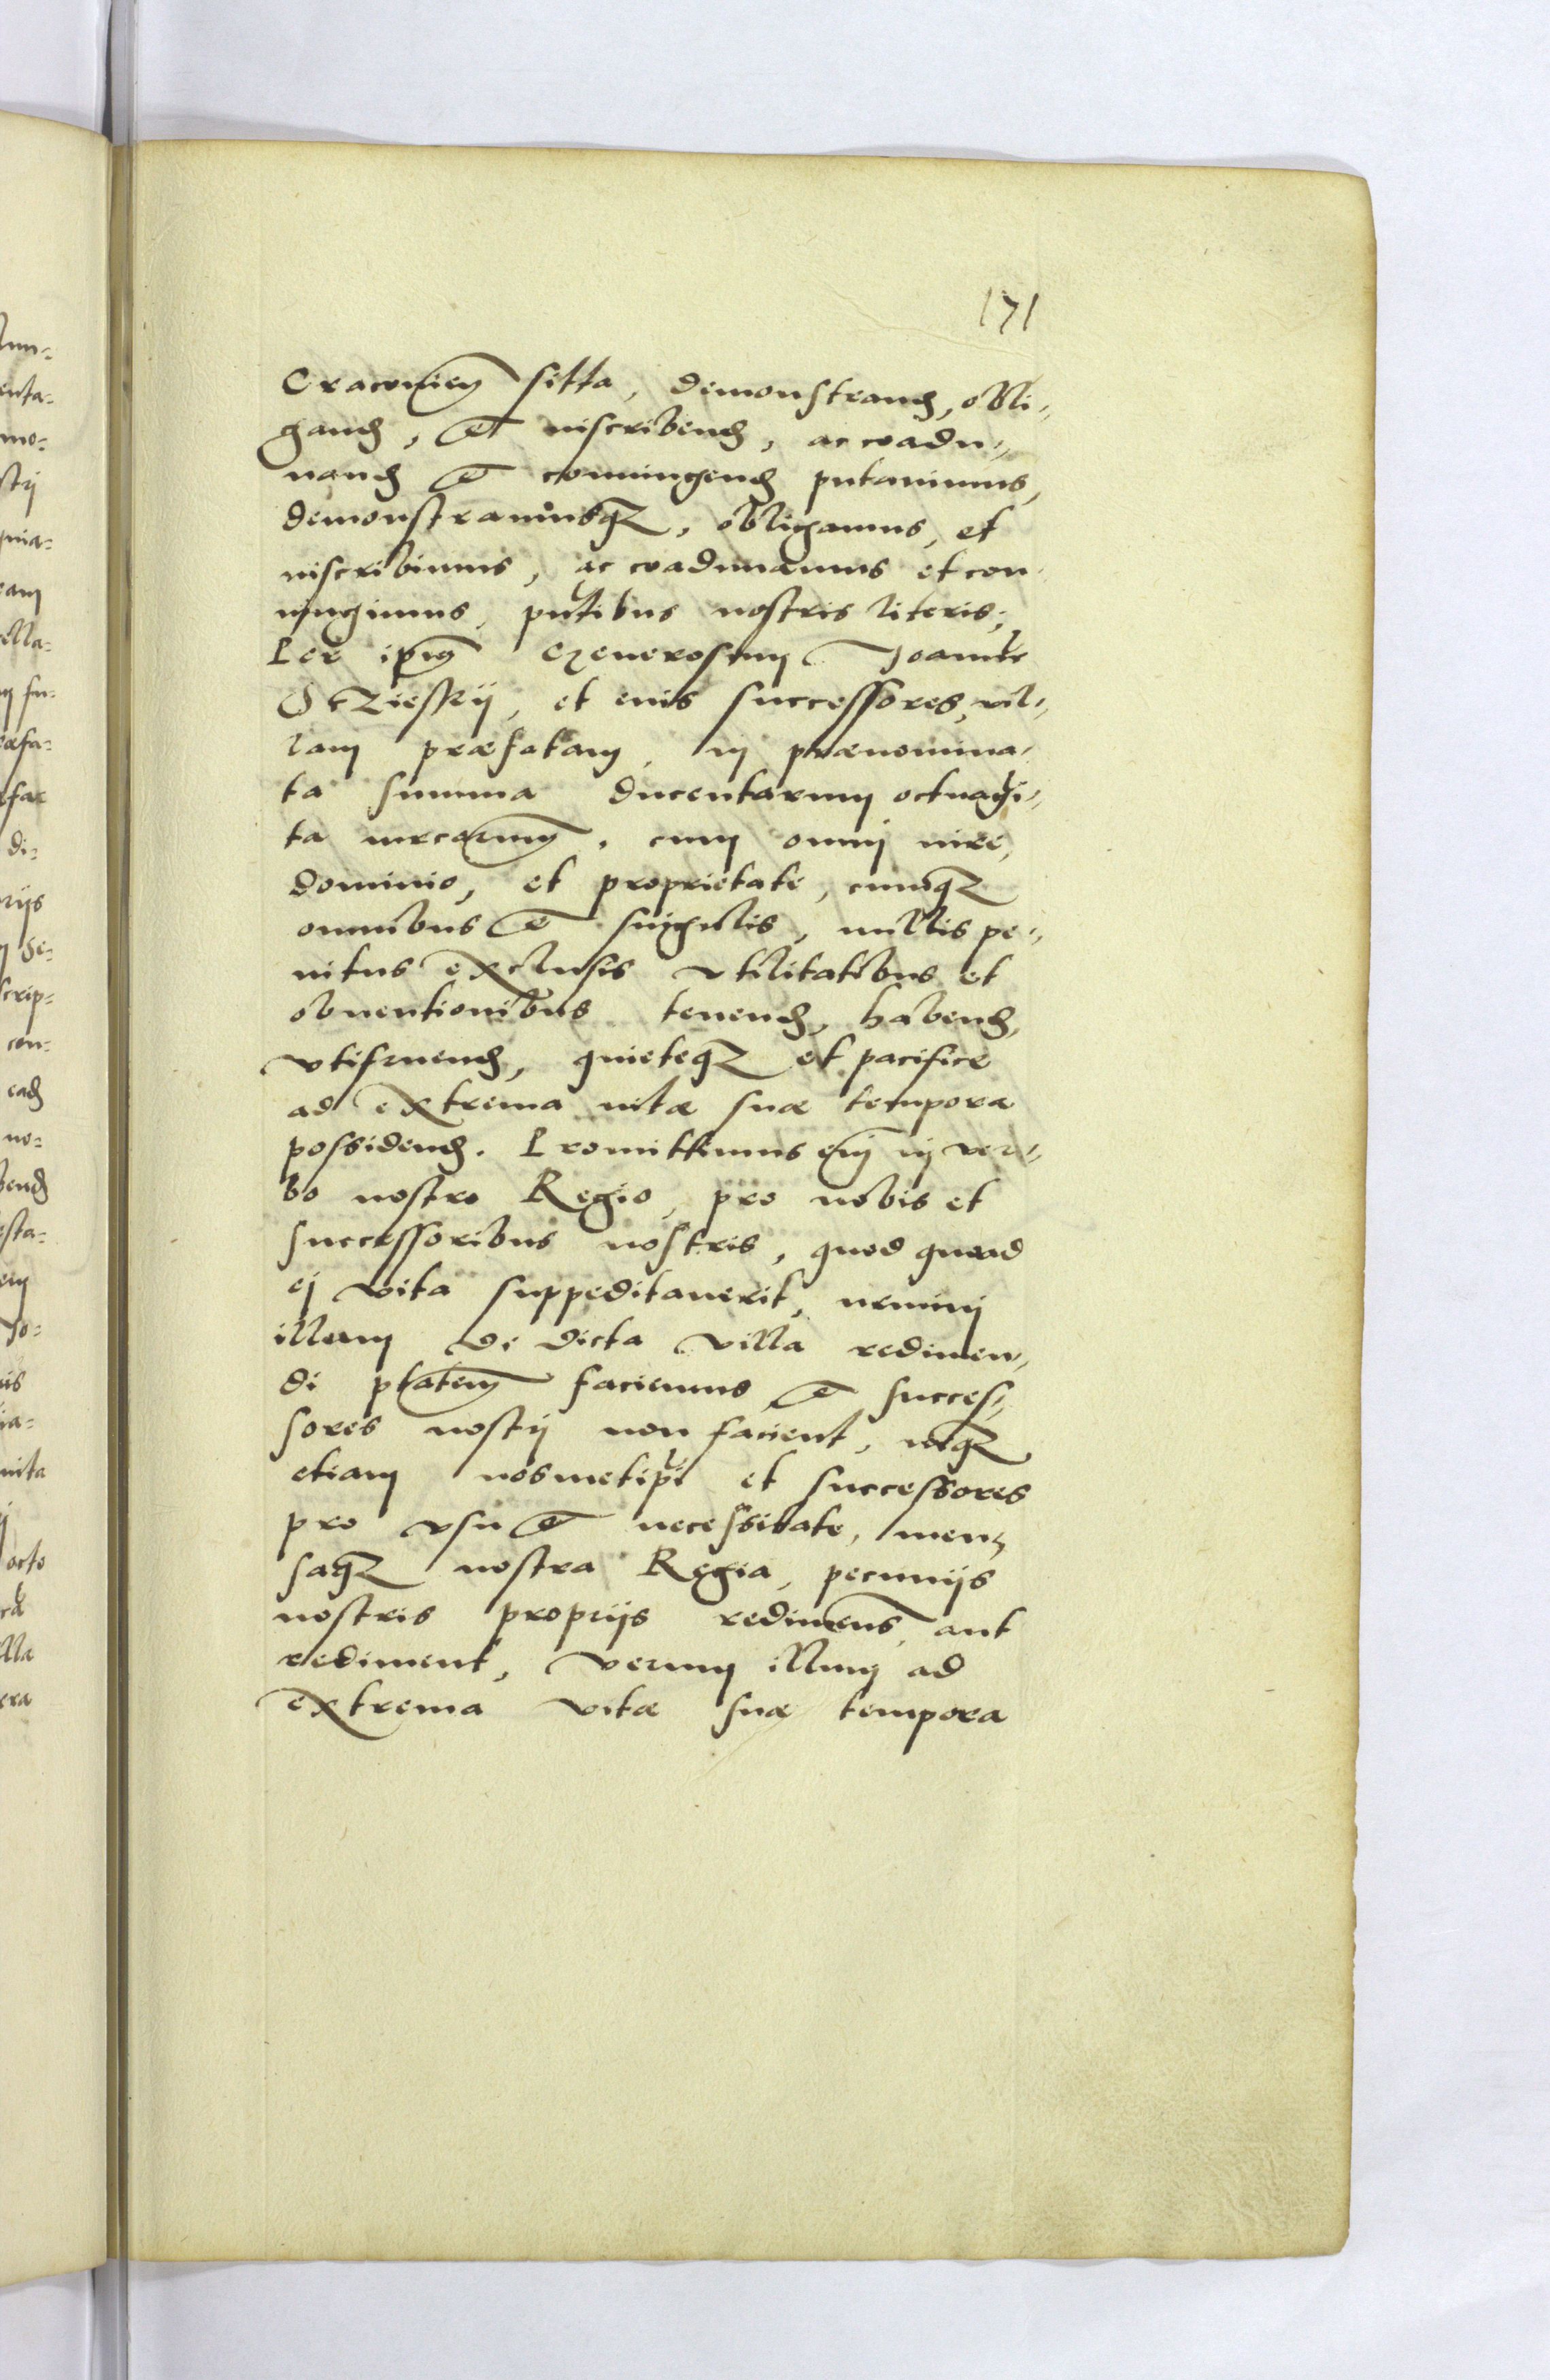 171
Cracovien̄ sitta, demonstrand, obli-
gand, et inscribend, ac coadu-
nand et coniungend putavimus,
demonstramusq3, obligamus, et
inscribimus, ac coadunamus et con
iungimus, pn̄tibus nostris literis;
Per ipm̄ Generosum Joannē
et eius successores, vil-
lam præfatam, in prænomina-
ta summa ducentarum octuagī-
ta mrcarum, cum omni iure,
dominio, et proprietate, cumq3
omnibus et singulis, nullis pe-
nitus exclusis vtilitatibus et
obuentionibus tenend, habend,
vtifruend, quieteq3 et pacifice
ad extrema vitæ suæ tempora
possidend. Promittimus em̄ in ver-
bo nostro Regio, pro nobis et
successoribus nostris, quod quoad
ei vita suppeditauerit, nemini
illam de dicta villa redimen-
di ptatem̄ faciemus et succes-
sores nostri non facient, neq3
etiam nosmetipsi et successores
pro vsu et necessitate, men-
saq3 nostra Regia, pecuniis
nostris propriis redimems̄, aut
rediment, verum illum ad
extrema vitæ suæ tempora